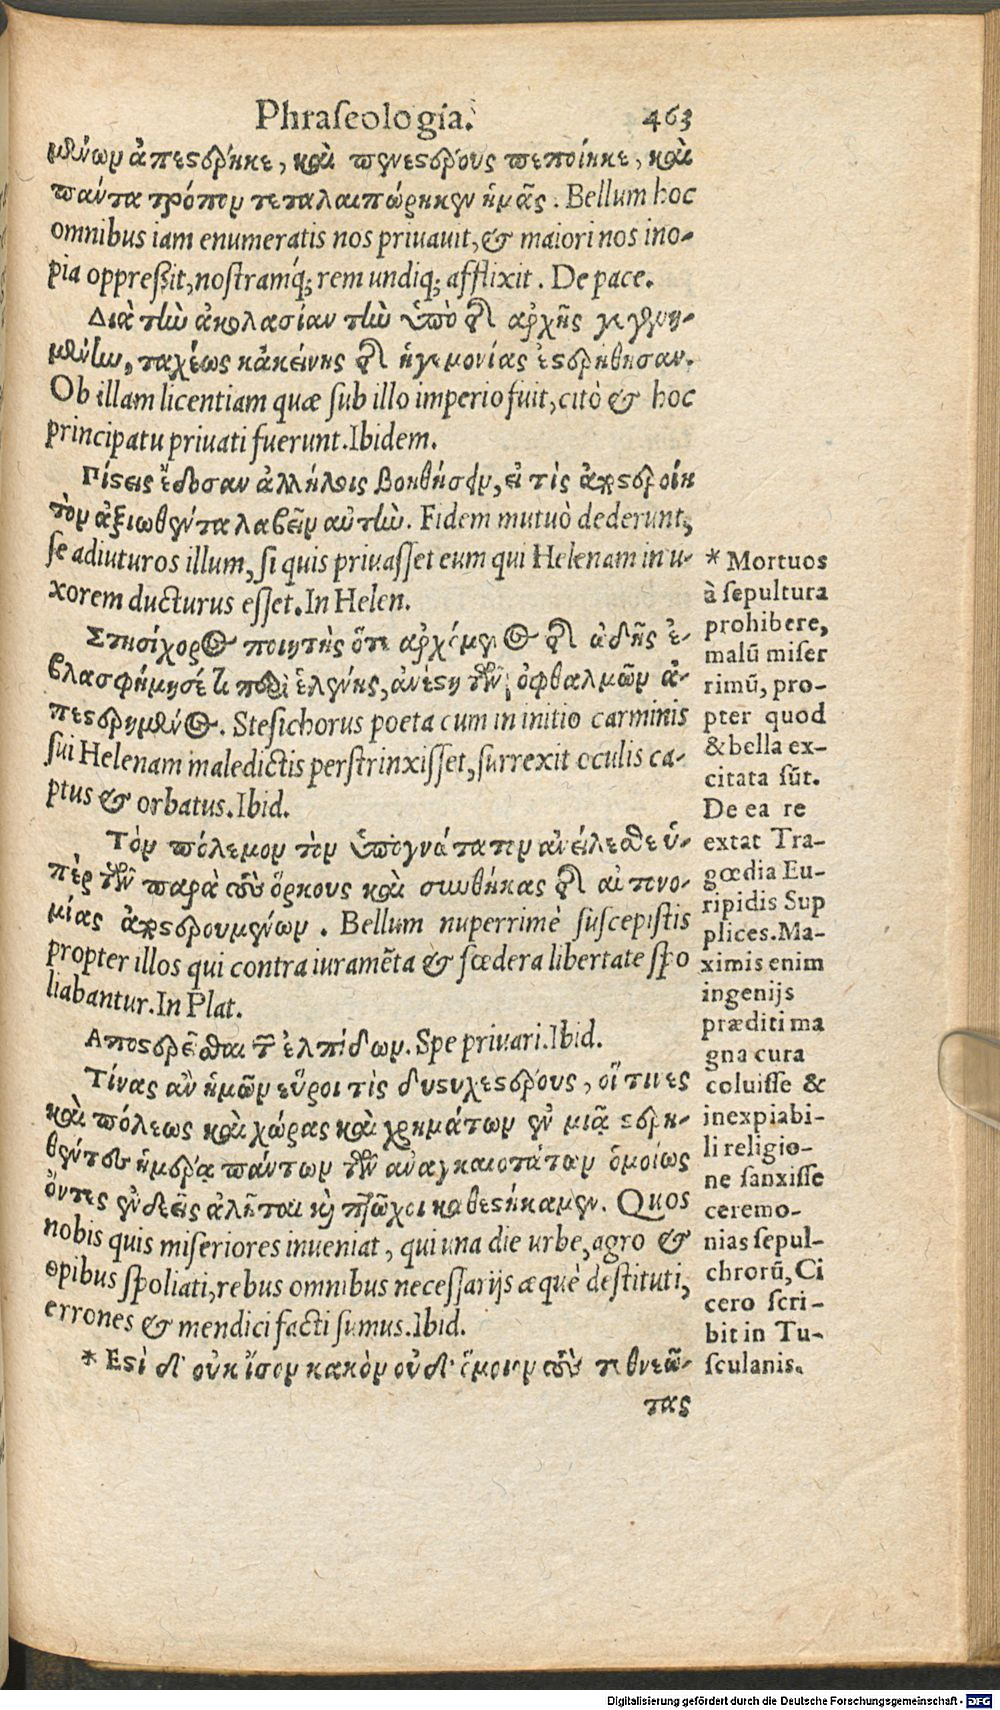 Phraſeologia. 463
μένων ἀπεστέρηκε, καὶ πενεστέρους πεποίηκε, καὶ
πάντα τρόπον τεταλαιπώρηκεν ἡμᾶς. Bellum hoc
omnibus iam enumeratis nos priuauit, & maiori nos ino-
pia oppreſſit, noſtramq́; rem undiq; afflixit. De pace.
Διὰ τὴν ἀκολασίαν τὴν ὑπὸ τῆς ἀρχῆς γεγενη-
μένην, ταχέως κἀκείνης τῆς ἡγεμονίας ἐστερήθησαν.
Ob illam licentiam quæ ſub illo imperio fuit, citò & hoc
principatu priuati fuerunt. Ibidem.
Πίστεις ἔδοσαν ἀλλήλοις βοηθήσειν, εἰ τὶς ἀποστεροίη
τὸν ἀξιωθέντα λαβεῖν αὐτὴν. Fidem mutuò dederunt,
ſe adiuturos illum, ſi quis priuaſſet eum qui Helenam in u-
xorem ducturus eſſet. In Helen.
Στησίχορος ποιητὴς ὅτε ἀρχόμενος τῆς ᾠδῆς ἐ-
βλασφήμησέ τι περὶ ἑλένης, ἀνέστη τῶν ὀφθαλμῶν ἀ-
πεστερημένος. Steſichorus poeta cum in initio carminis
ſui Helenam maledictis perſtrinxiſſet, ſurrexit oculis ca-
ptus & orbatus. Ibid.
Τὸν πόλεμον τὸν ὑπογυιότατον ἀνείλεσθε ὑ-
πὲρ τῶν παρὰ τοὺς ὅρκους καὶ συνθήκας τῆς αὐτονο-
μίας ἀποστερουμένων. Bellum nuperrimè ſuſcepiſtis
propter illos qui contra iuramẽta & fœdera libertate ſpo
liabantur. In Plat.
Αποστερεῖσθαι τῶν ἐλπίδων. Spe priuari. Ibid.
Τίνας ἂν ἡμῶν εὕροι τὶς δυστυχεστέρους, οἵ τινες
καὶ πόλεως καὶ χώρας καὶ χρημάτων ἐν μιᾷ στερη-
θέντες ἡμέρᾳ πάντων τῶν ἀναγκαιοτάτων ὁμοίως
ὄντες ἐνδεεῖς ἀλῆται καὶ πτωχοι καθεστήκαμεν. Quos
nobis quis miſeriores inueniat, qui una die urbe, agro &
opibus ſpoliati, rebus omnibus neceſſarijs æquè deſtituti,
errones & mendici facti ſumus. Ibid.
* Εστὶ δ' οὐκ ἴσον κακὸν οὐδ' ὅμοιον τοὺς τεθνεῶ-
τας
* Mortuos
à ſepultura
prohibere,
malũ miſer
rimũ, pro-
pter quod
& bella ex-
citata ſũt.
De ea re
extat Tra-
gœdia Eu-
ripidis Sup
plices. Ma-
ximis enim
ingenijs
præditi ma
gna cura
coluiſſe &
inexpiabi-
li religio-
ne ſanxiſſe
ceremo-
nias ſepul-
chrorũ, Ci
cero ſcri-
bit in Tu-
ſculanis.
Digitalisierung gefördert durch die Deutsche Forschungsgemeinschaft - DFG